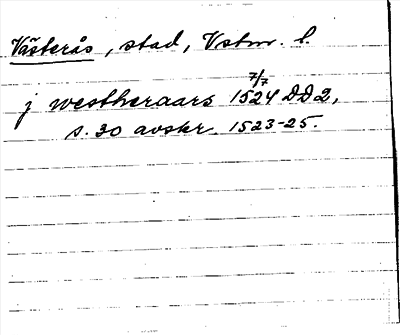 Västerås, stad, Vstm. l.
7/7
j westheraars 1524 DD2,
s. 30 avskr. 1523-25.